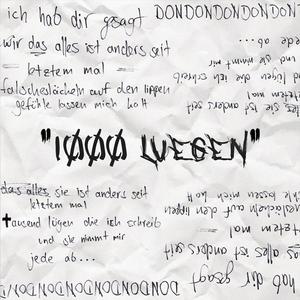 ich hab dir gesagt DONDONDONDONDON
wir das alles ist anders seit
letztem mal
falscheslächeln auf den lippen
gefühle lassen mich kalt
jede ab...
und sie nimmt mir
lügen die ich schreib
letztem mal
sie ist anders seit
"1ØØØ LUEGEN"
das alles sie ist anders seit
letztem mal
tausend lügen die ich schreib
und sie nimmt mir
jede ab...
lassen mich kalt
auf den lippen
mal
das alles ist anders seit
hab dir gesagt
DONDONDONDONDONDON